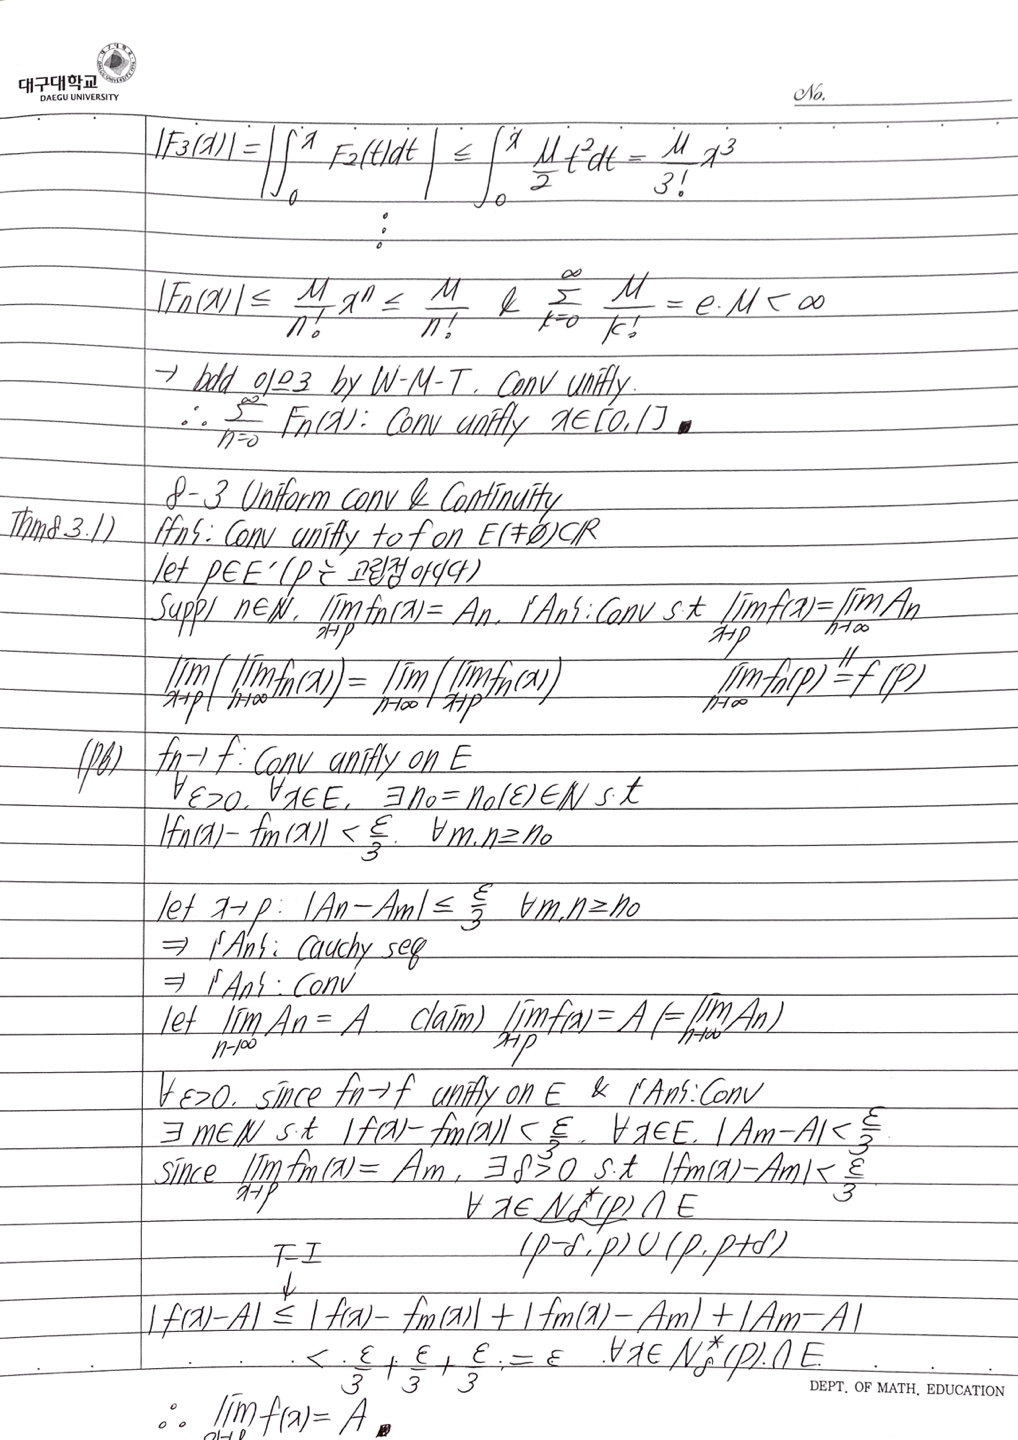 대구대학교
DAEGU UNIVERSITY
No.
|F₃(x)| = |∫₀ˣ F₂(t)dt| ≤ ∫₀ˣ M/2 t²dt = M/3! x³
⋮
|Fn(x)| ≤ M/n! xⁿ ≤ M/n! & ∞Σk=0 M/k! = e·M < ∞
→ bdd 이므로 by W-M-T. Conv unifly.
∴ ∞Σn=0 Fn(x): Conv unifly x∈[0,1] ∎
8-3 Uniform conv & Continuity
Thm8.3.1) {fn}: Conv unifly to f on E(≠∅)⊂ℝ
let p∈E′ (p는 고립점 아니다)
Supp) n∈ℕ. lim x→p fn(x) = An. {An}: Conv s.t lim x→p f(x) = lim n→∞ An
lim x→p ( lim n→∞ fn(x)) = lim n→∞ ( lim x→p fn(x)) lim n→∞ fn(p) = f(p)
〃
(pf) fn→f: Conv unifly on E
∀ε>0. ∀x∈E. ∃n₀=n₀(ε)∈ℕ s.t
|fn(x)-fm(x)| < ε/3. ∀m.n≥n₀
let x→p: |An-Am| ≤ ε/3 ∀m,n≥n₀
⇒ {An}: Cauchy seq
⇒ {An}: Conv
let lim n→∞ An = A claim) lim x→p f(x) = A (= lim n→∞ An)
∀ε>0. since fn→f unifly on E & {An}: Conv
∃m∈ℕ s.t |f(x)-fm(x)| < ε/3. ∀x∈E. |Am-A| < ε/3.
since lim x→p fm(x) = Am, ∃δ>0 s.t |fm(x)-Am| < ε/3
∀x∈Nδ*(p)∩E
(p-δ,p)∪(p,p+δ)
T-I
↓
|f(x)-A| ≤ |f(x)-fm(x)| + |fm(x)-Am| + |Am-A|
< ε/3 + ε/3 + ε/3 = ε ∀x∈Nδ*(p)∩E
DEPT. OF MATH. EDUCATION
∴ lim x→p f(x) = A ∎